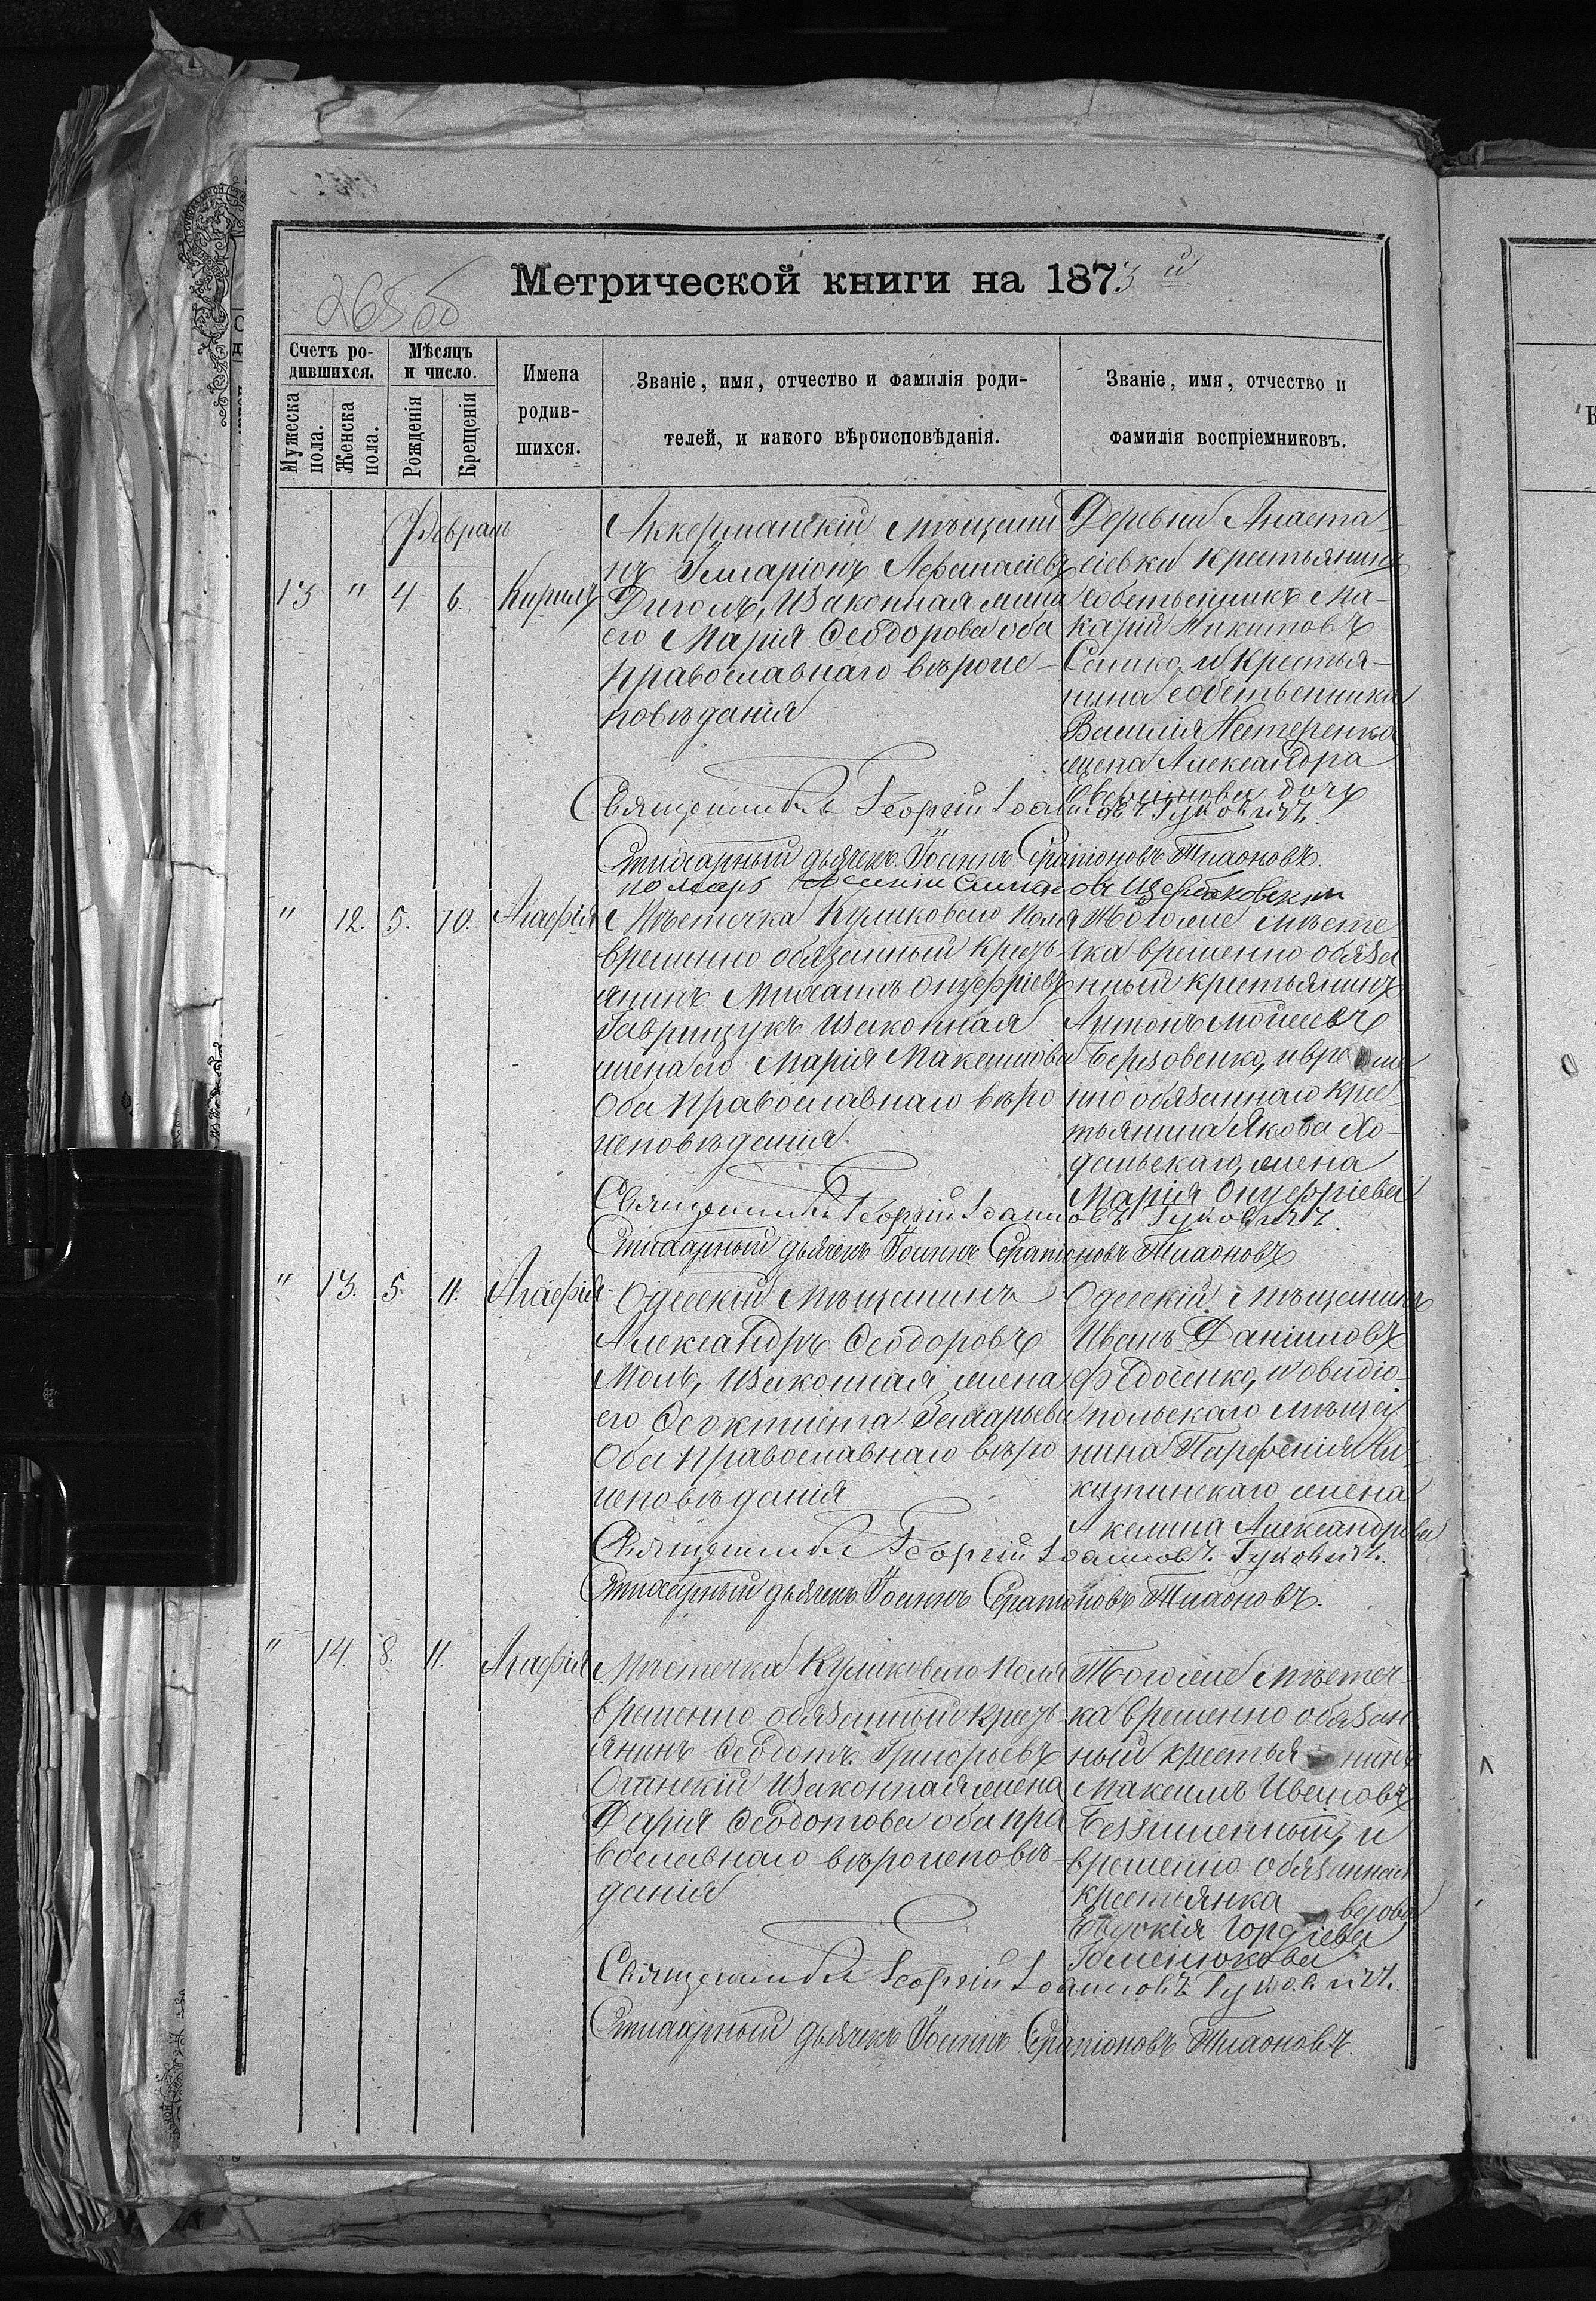 Метрической книги на 1873 й
265 об
Счетъ ро-
дившихся.
Мѣсяцъ
и число.
Мужеска
пола.
Женска
пола.
Рожденія
Крещенія
Имена
родив-
шихся.
Званіе, имя, отчество и фамилія роди-
телей, и какого вѣроисповѣданія.
Званіе, имя, отчество и
фамилія воспріемниковъ.
Февраль
13 " 4 6. Кирилъ
Аккерманскій мѣщани
нъ Илларіонъ Афанасіевъ
Диголъ, Изаконная жена
его Марія Ѳеодорова оба
православнаго вѣроис-
повѣданія
Деревни Анаста-
сіевки крестьянинъ
собственникъ Ма-
карій Никитовъ
Сешко, и крестья-
нина собственника
Василія Нестеренка
жена Александра
дочь
Священникъ Георгій Іоанновъ Гуковичъ.
Стихарный дьячекъ Іоаннъ Серапіоновъ Тихоновъ.
" 12. 5. 10. Агафія
Мѣстечка Куликоваго Поля
временно обязанный крест-
янинъ Михаилъ Онуфріевъ
Гаврищукъ Изаконная
жена его Марія Максимова
Оба Православнаго вѣро
исповѣданія.
Тогоже мѣсте
чка временно обяза
нный крестьянинъ
Антонъ Моисеевъ
Березовенко, и време
нно обязаннаго крес-
тьянина Якова Хо-
дельскаго, жена
Марія Онуфріева
Священникъ Георгій Іоанновъ Гуковичъ.
Стихарный дьячекъ Іоаннъ Серапіоновъ Тихоновъ
" 13. 5. 11. Агафія
Одесскій Мѣщанинъ
Александръ Ѳеодоровъ
Моль, Изаконная жена
его Ѳеоктиста Захарьева
Оба Православнаго вѣро-
исповѣданія
Одесскій мѣщанинъ
Иванъ Даниловъ
Федосенко, и овидіо-
польскаго мѣща
нина Парфенія Ни
китинскаго жена
Акилина Александрова
Священникъ Георгій Іоанновъ Гуковичъ.
Стихарный дьячекъ Іоаннъ Серапіоновъ Тихоновъ.
" 14. 8. 11. Агафія
Мѣстечка Куликоваго Поля
временно обязанный крест-
янинъ Ѳеодотъ Григорьевъ
Изаконная жена
Дарія Ѳеодотова оба пра
вославнаго вѣроисповѣ-
данія
Тогоже мѣстеч-
ка временно обязан
ный крестья нинъ
Максимъ Ивановъ
и
временно обязанная
крестьянка вдова
Евдокія Гордіева
Священникъ Георгій Іоанновъ Гуковичъ.
Стихарный дьячекъ Іоаннъ Серапіоновъ Тихоновъ.